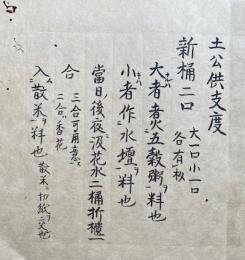 土公供支度
新桶二口 大一口小一口 各有杓
大者煮五穀粥料也
小者作水壇料也
當日後夜汲花水二桶折櫃一
合 三合可用意 二合香花
入散米料也 散米ニ切紙ヲ交也